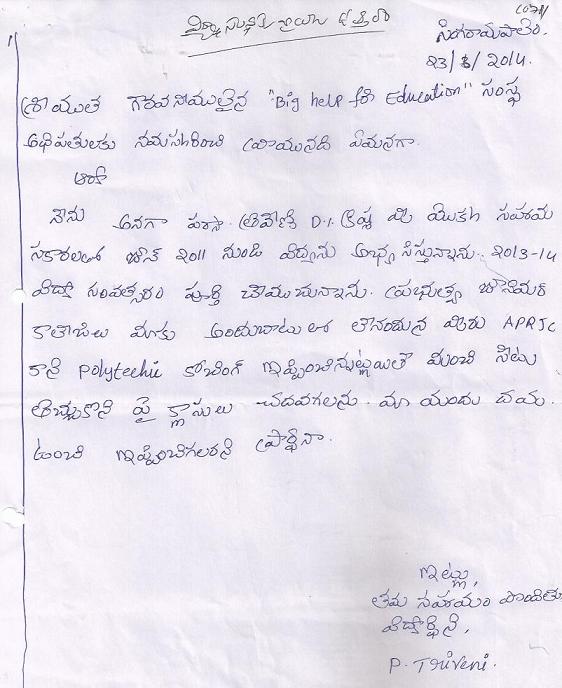 సింగరాయపాలెం.
23/3/2014.
శ్రీయుత గౌరవనీయులైన "Big help for Education" సంస్థ
అధిపతులకు నమస్కరించి వ్రాయునది ఏమనగా.
ఆర్యా
నేను అనగా పరసా త్రివేణి D.i. క్రిష్ణ మీ యొక్క సహాయ
సకారంలతో జూన్ 2011 నుండి విద్యను అభ్యసిస్తున్నాను. 2013-14
విద్యా సంవత్సరం పూర్తి చేయుచున్నాను. ప్రభుత్వ జూనియర్
కాలేజీలు మాకు అందుబాటులో లేనందున మీరు APRJC
కానీ polytechic కోచింగ్ ఇప్పించినట్లయితే మంచి సీటు
తెచ్చుకొని పై క్లాసులు చదవగలను. మా యందు దయ
ఉంచి ఇప్పించగలరని ప్రార్థన.
ఇట్లు,
తమ సహాయం పొందిత
విద్యార్థిని,
P. Triveni.